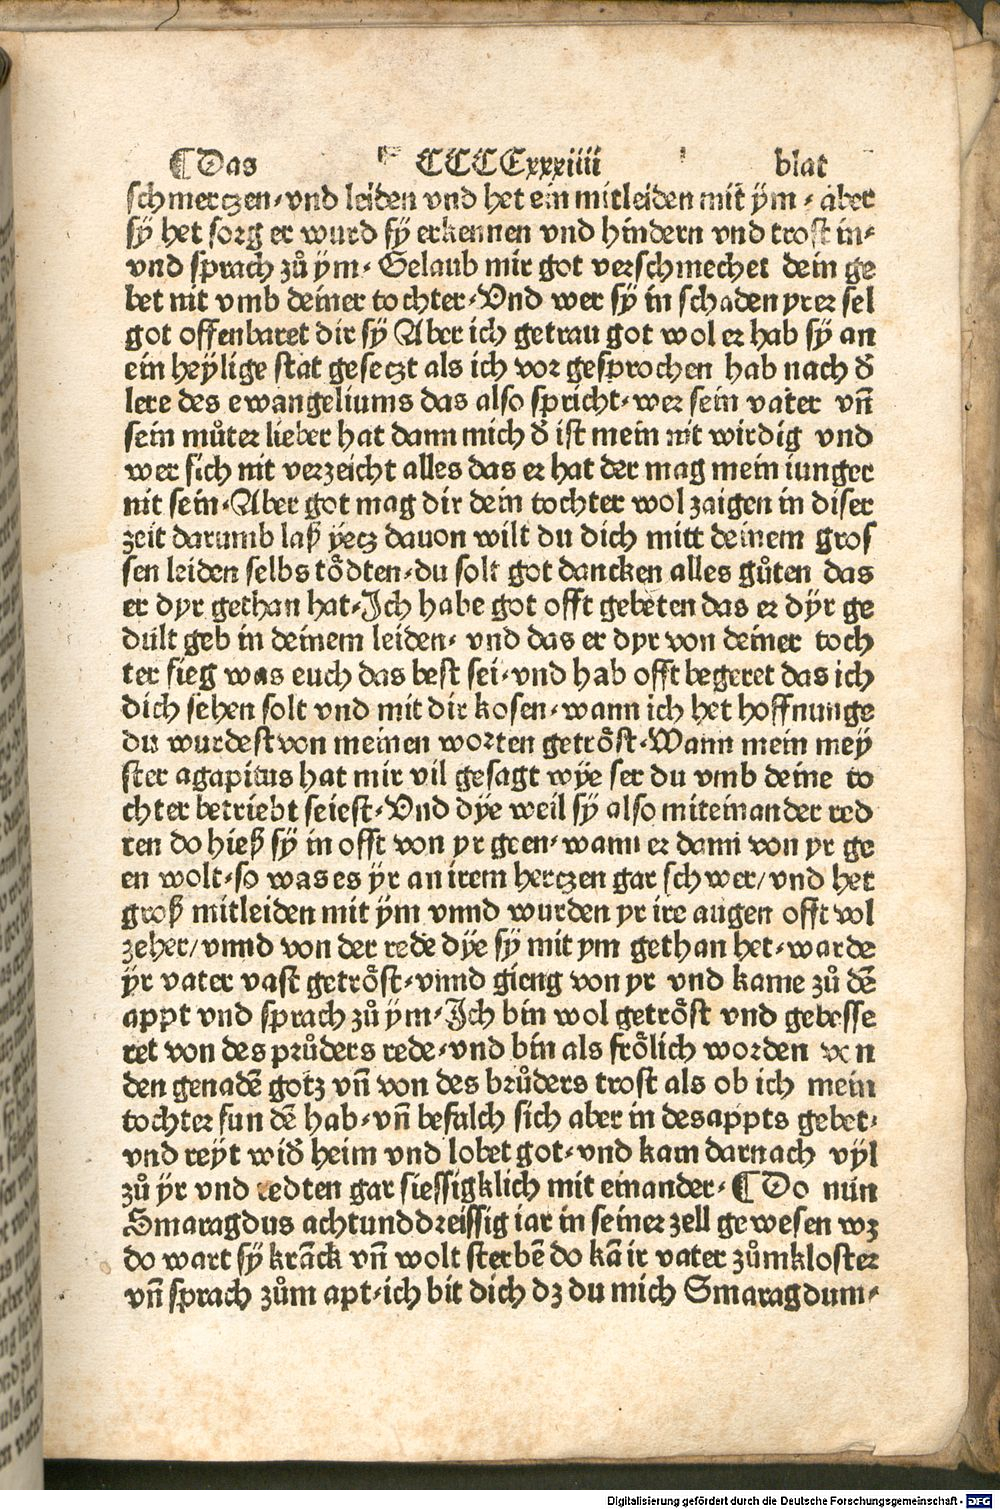 ¶Das CCCCxxxiiii blat
schmerczen·vnd leiden vnd het ein mitleiden mit ÿm·aber
sÿ het sorg er wurd sÿ erkennen vnd hindern vnd trost in·
vnd sprach zů ÿm·Gelaub mir got verschmechet dein ge
bet nit vmb deiner tochter·Vnd wer sÿ in schaden yrer sel
got offenbaret dir sÿ Aber ich getrau got wol er hab sÿ an
ein heÿlige stat gesetzt als ich vor gesprochen hab nach đ
lere des ewangeliums das also spricht·wer sein vater vñ
sein můter lieber hat dann mich đ ist mein nit wirdig vnd
wer sich nit verzeicht alles das er hat der mag mein iunger
nit sein·Aber got mag dir dein tochter wol zaigen in diser
zeit darumb laß ÿecz dauon wilt du dich mitt deinem gros
sen leiden selbs tödten·du solt got dancken alles gůten das
er dyr gethan hat·Ich habe got offt gebeten das er dÿr ge
dult geb in deinem leiden· vnd das er dyr von deiner toch
ter fieg was euch das best sei·vnd hab offt begeret das ich
dich sehen solt vnd mit dir kosen·wann ich het hoffnunge
du wurdest von meinen worten getröst·Wann mein mey
ster agapitus hat mir vil gesagt wÿe ser du vmb deine to
chter betriebt seiest·Vnd dÿe weil sÿ also miteinander red
ten do hieß sÿ in offt von yr geen·wann er dann von yr ge
en wolt·so was es ÿr an irem herczen gar schwer/vnd het
groß mitleiden mit ÿm vnnd wurden yr ire augen offt vol
zeher/vnnd von der rede dÿe sÿ mit ym gethan het·warde
ÿr vater vast getröst·vnnd gieng von yr vnd kame zů dē
appt vnd sprach zů ÿm·Ich bin wol getröst vnd gebesse
ret von des průders rede·vnd bin als frölich worden von
den genadē gotz vñ von des brůders trost als ob ich mein
tochter fun dē hab·vñ befalch sich aber in des appts gebet·
vnd reÿt wiđ heim vnd lobet got·vnd kam darnach vÿl
zů ÿr vnd redten gar siessigklich mit einander·¶Do nun
Smaragdus achtunddreissig iar in seiner zell gewesen wz
do wart sÿ krāck vñ wolt sterbē do kā ir vater zůmkloster
vñ sprach zům apt·ich bit dich dz du mich Smaragdum·
Digitalisierung gefördert durch die Deutsche Forschungsgemeinschaft - DFG